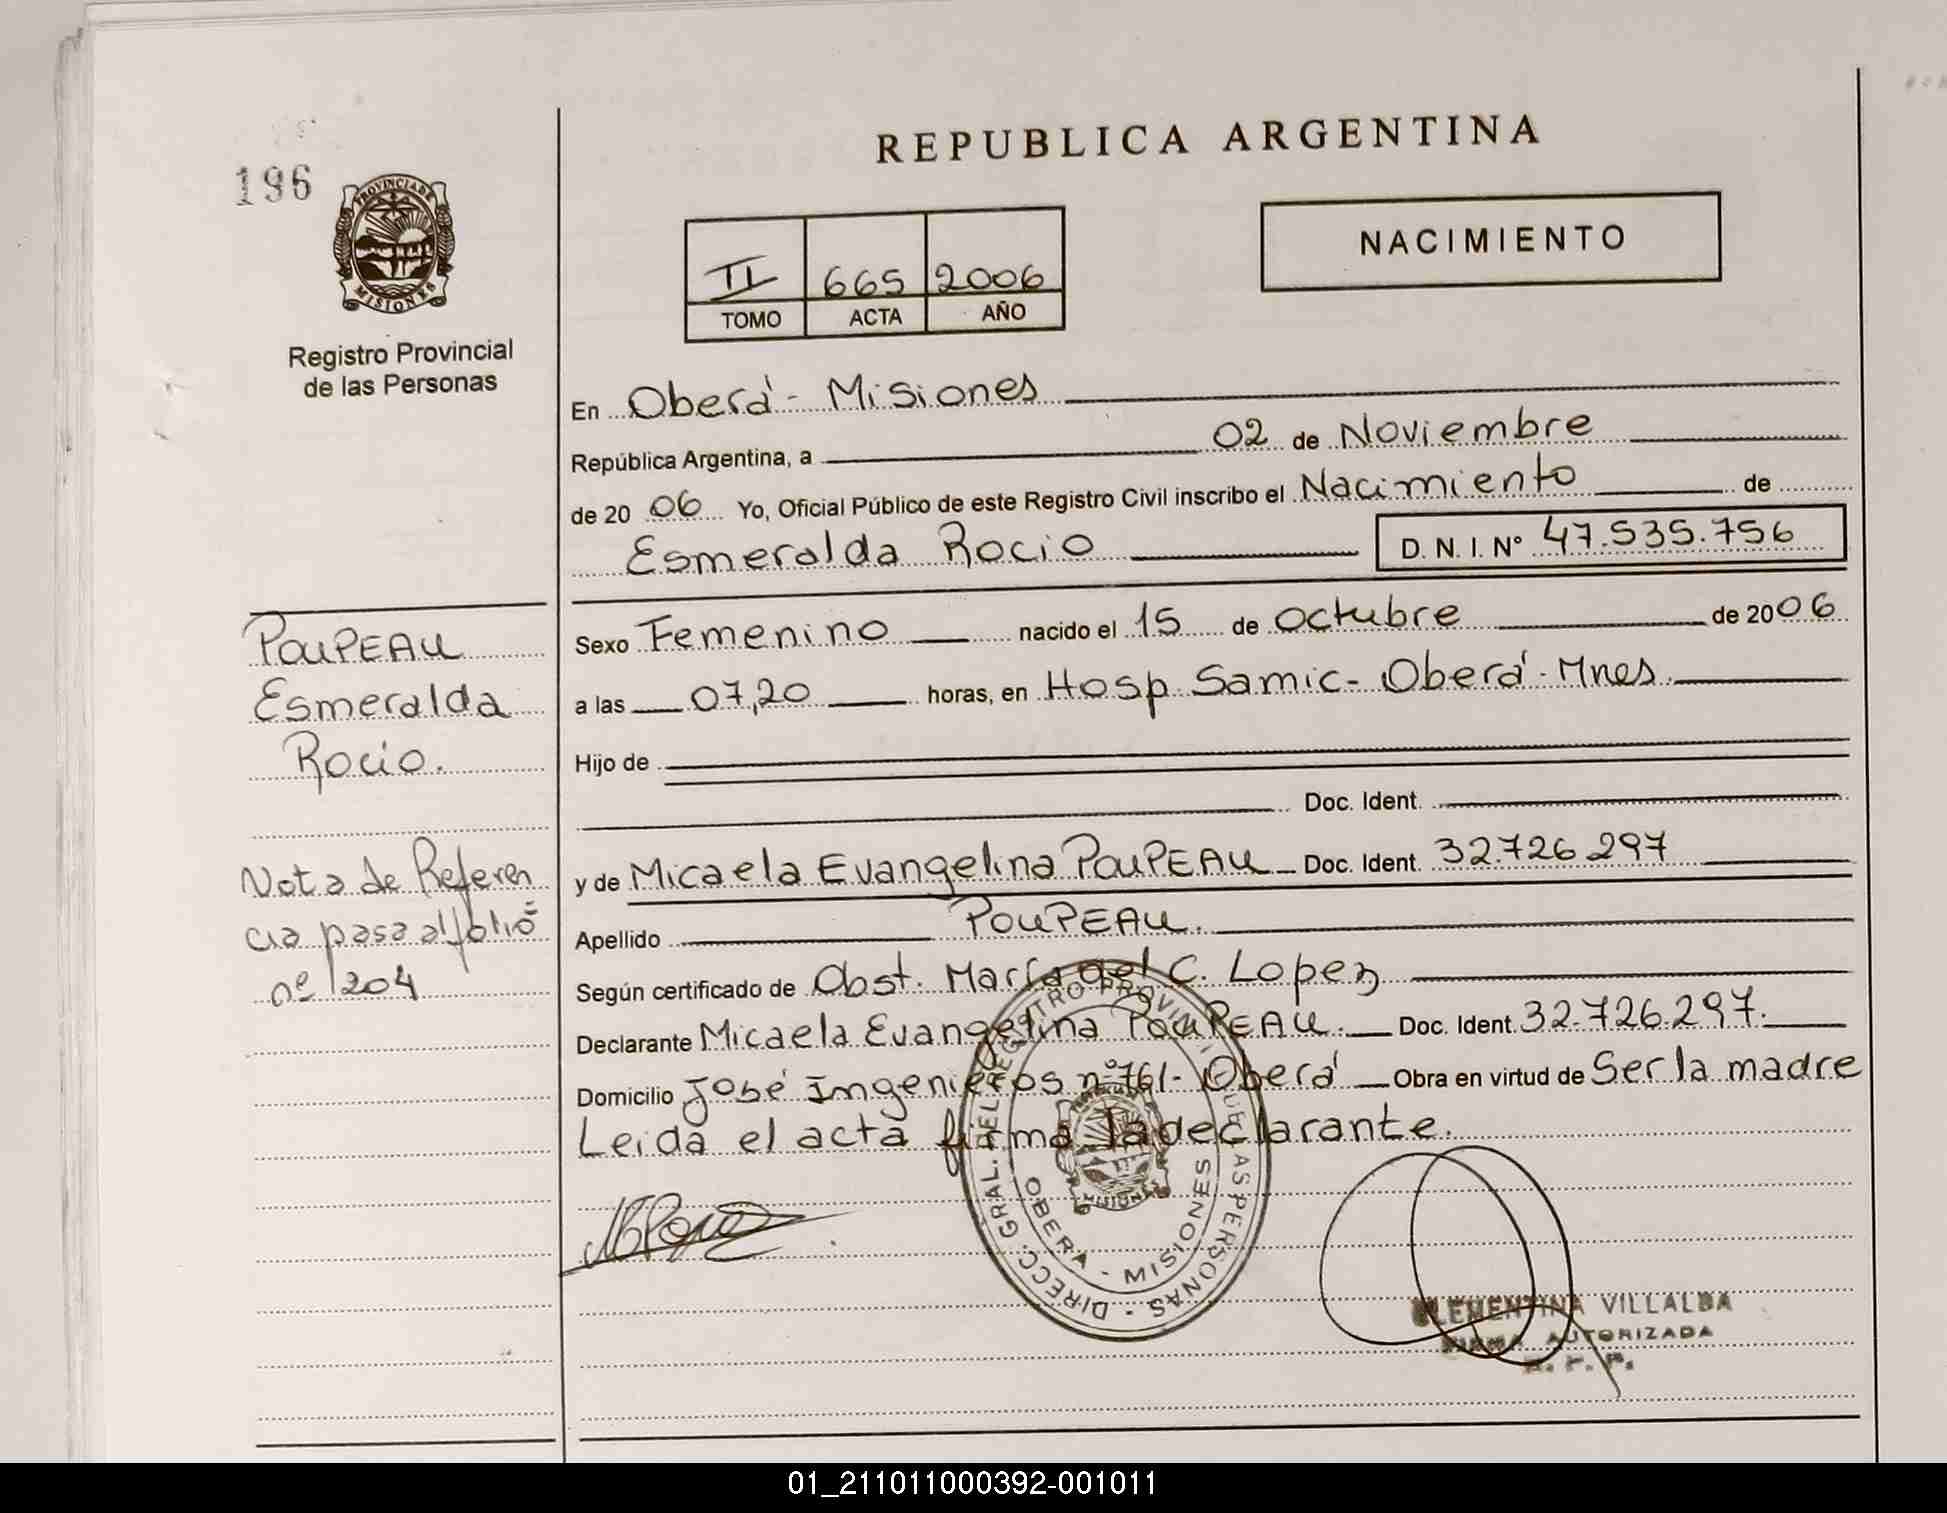 196
PROVINCIA DE
MISIONES
Registro Provincial
de las Personas
REPUBLICA ARGENTINA
II 665 2006
TOMO ACTA AÑO
NACIMIENTO
En Oberá - Misiones
República Argentina, a 02 de Noviembre
de 20 06 Yo, Oficial Público de este Registro Civil inscribo el Nacimiento de
Esmeralda Rocio D. N. I. Nº 47.535.756
Sexo Femenino nacido el 15 de Octubre de 2006
a las 07,20 horas, en Hosp. Samic - Oberá - Mnes.
Hijo de
Doc. Ident.
y de Micaela Evangelina POUPEAU Doc. Ident. 32.726.297
Apellido POUPEAU.
Según certificado de Obst. María del C. Lopez
Declarante Micaela Evangelina POUPEAU. Doc. Ident. 32.726.297.
Domicilio José Ingenieros nº 761 - Oberá Obra en virtud de Ser la madre
Leida el acta firma la declarante.
POUPEAU
Esmeralda
Rocio.
Nota de Referen
cia pasa al folio
nº 204
DIRECC. GRAL. DEL REGISTRO PROVINCIAL DE LAS PERSONAS
OBERA - MISIONES
MISIONES
CLEMENTINA VILLALBA
FIRMA AUTORIZADA
R. P. P.
01_211011000392-001011